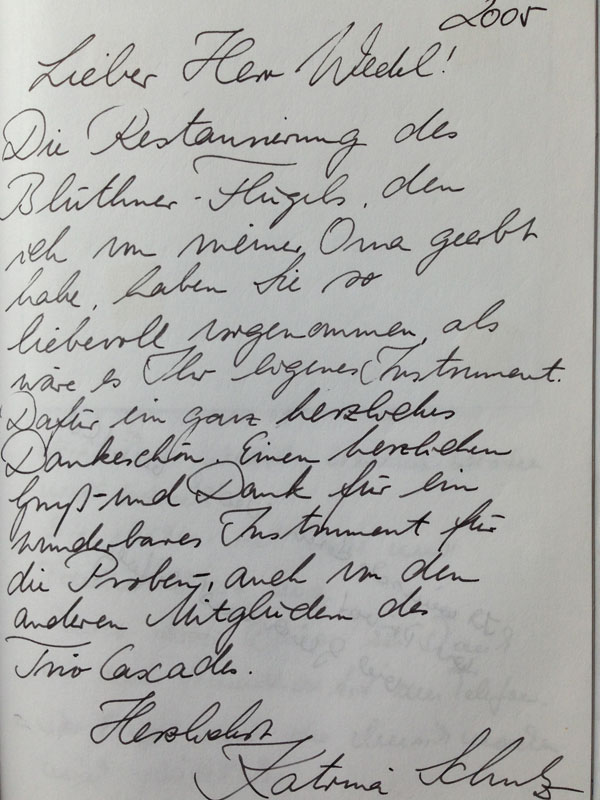 2005
Lieber Herr Wedel!
Die Restaurierung des
Blüthner-Flügels, den
ich von meiner Oma geerbt
habe, haben Sie so
liebevoll vorgenommen, als
wäre es Ihr eigenes Instrument.
Dafür ein ganz herzliches
Dankeschön. Einen herzlichen
Gruß und Dank für ein
wunderbares Instrument für
die Proben, auch von den
anderen Mitgliedern des
Trio Cascades.
Herzlichst
Katrina Schulz